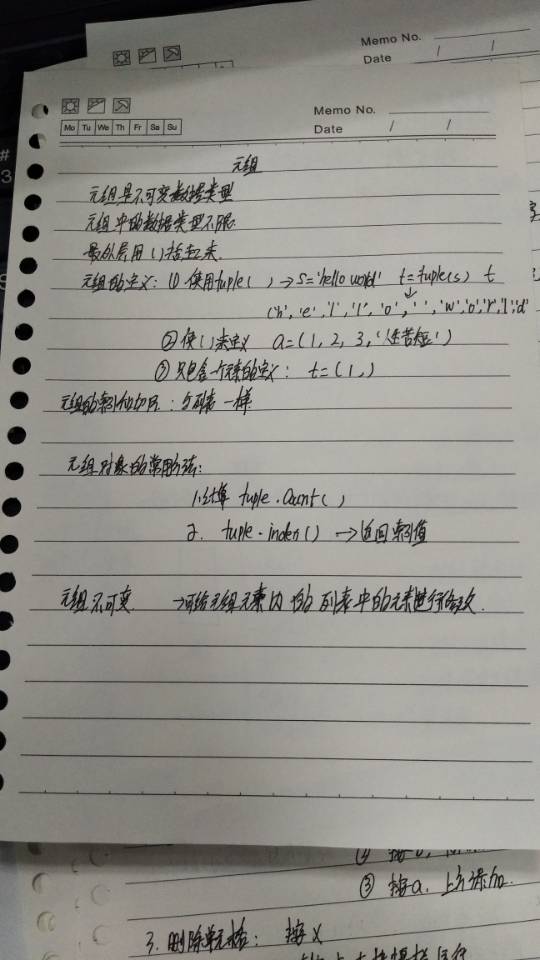 Memo No.
Date / /
Memo No.
Mo Tu We Th Fr Sa Su
Date / /
#
3
元组
元组是不可变数据类型
元组中的数据类型不限
最外层用()括起来
元组的定义: ① 使用tuple( ) → s='hello world' t=tuple(s) t
('h','e','l','l','o',' ','w','o','r','l','d'
② 使()来定义 a=(1, 2, 3, '人生苦短')
③ 只包含一个元素的定义: t=(1,)
元组的索引和切片: 与列表一样
元组对象的常用方法:
1.计算 tuple.count()
2. tuple.index() → 返回索引值
元组不可变 →可给元组元素内的列表中的元素进行修改.
③ 按a, 上方添加.
3. 删除单元格: 按x